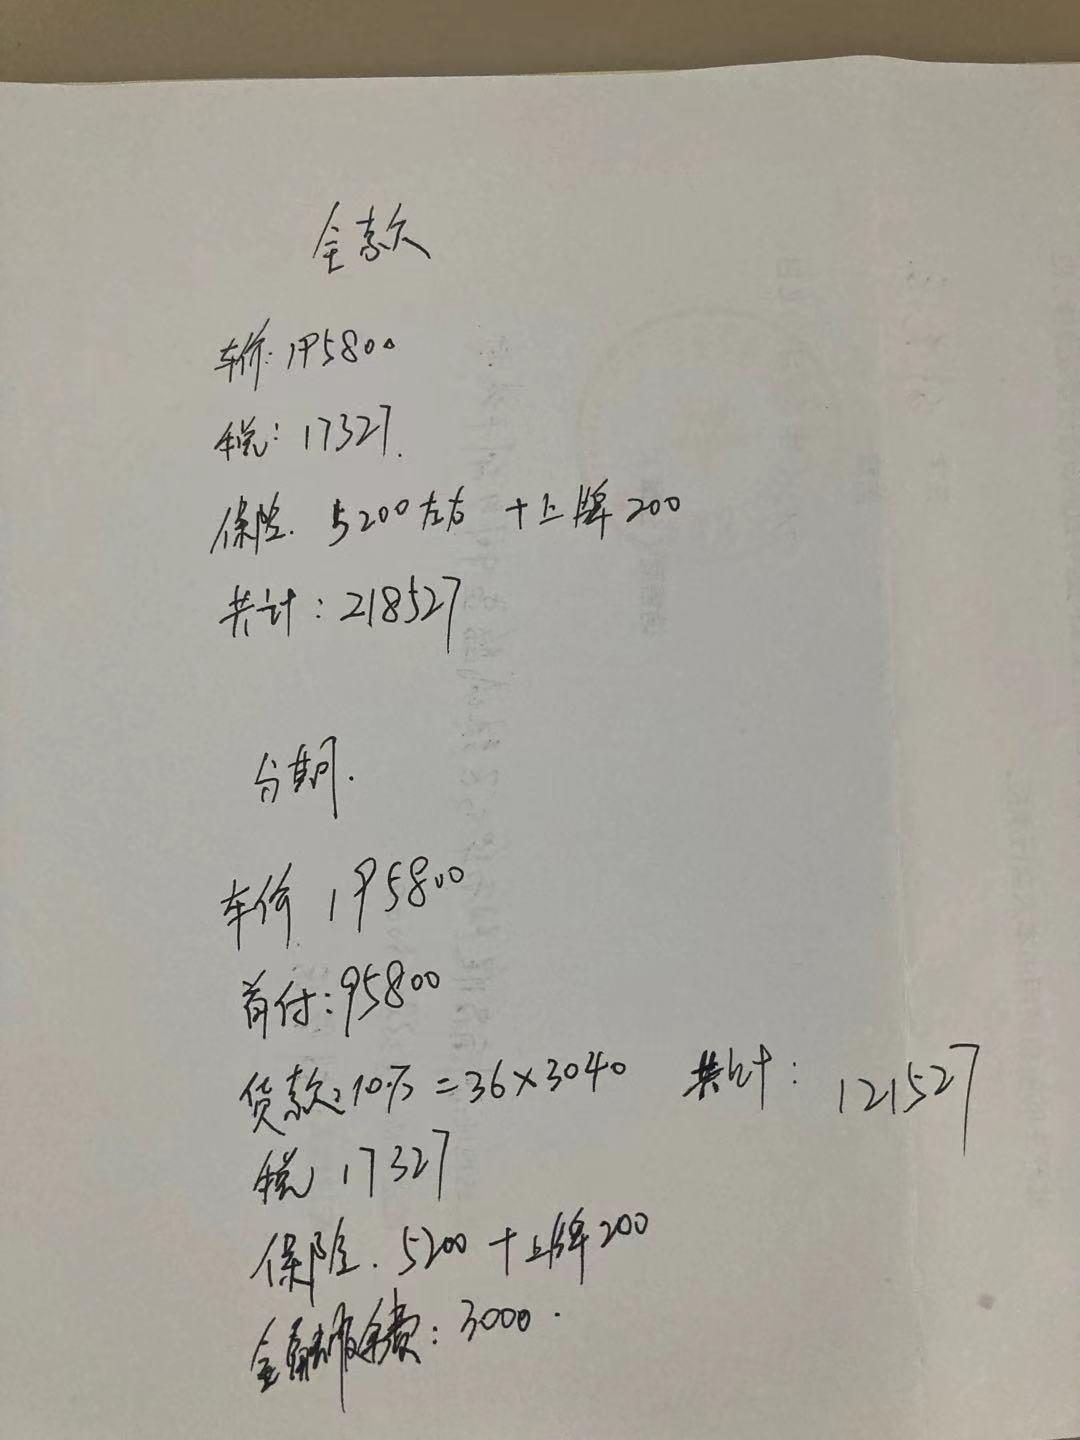 全款
车价: 195800
税: 17327.
保险. 5200左右 +上牌200
共计: 218527
分期.
车价 195800
首付: 95800
贷款: 10万 = 36×3040 共计: 121527
税 17327
保险. 5200 +上牌200
金融服务费: 3000.